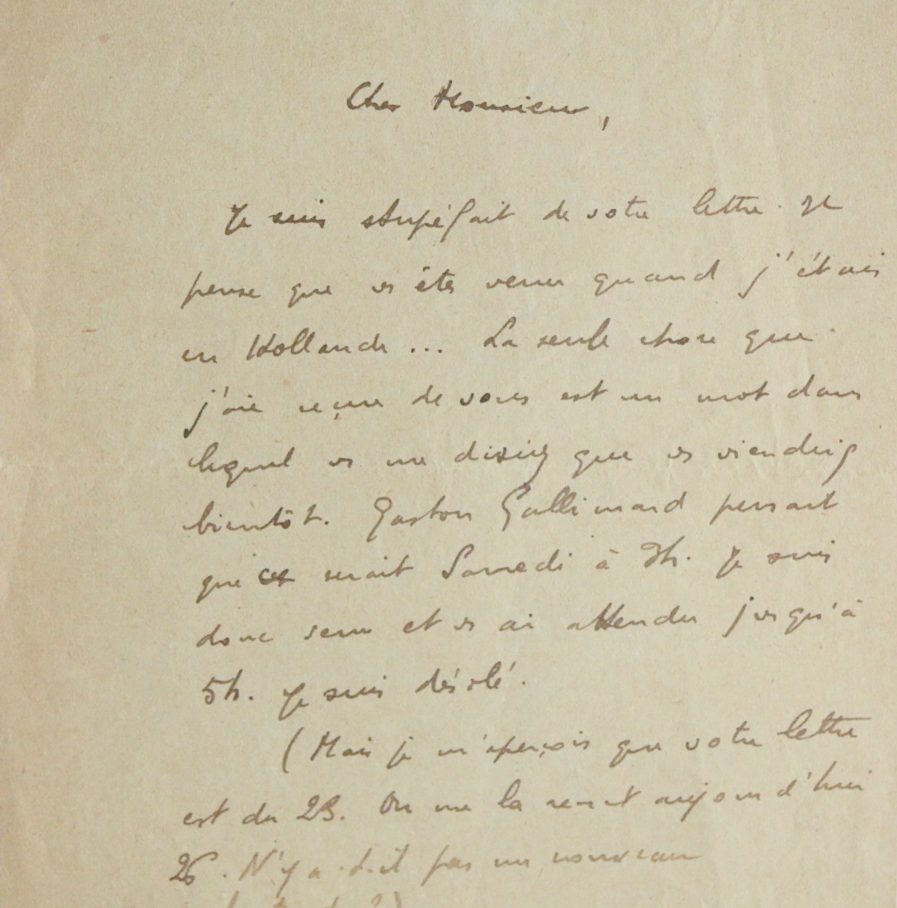 Cher Monsieur,
Je suis stupéfait de votre lettre. Je
pense que vs êtes venu quand j'étais
en Hollande ... La seule chose que
j'aie reçue de vous est un mot dans
lequel vs me disiez que vs viendriez
bientôt. Gaston Gallimard pensait
que ce serait Samedi à 3h. Je suis
donc venu et vs ai attendu jusqu'à
5h. Je suis désolé.
(Mais je m'aperçois que votre lettre
est du 23. On me la remet aujourd'hui
26. N'y a-t-il pas un nouveau